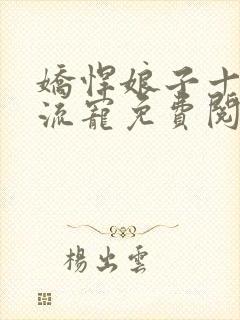 嬌悍娘子十
流寵免費閱
楊出雲